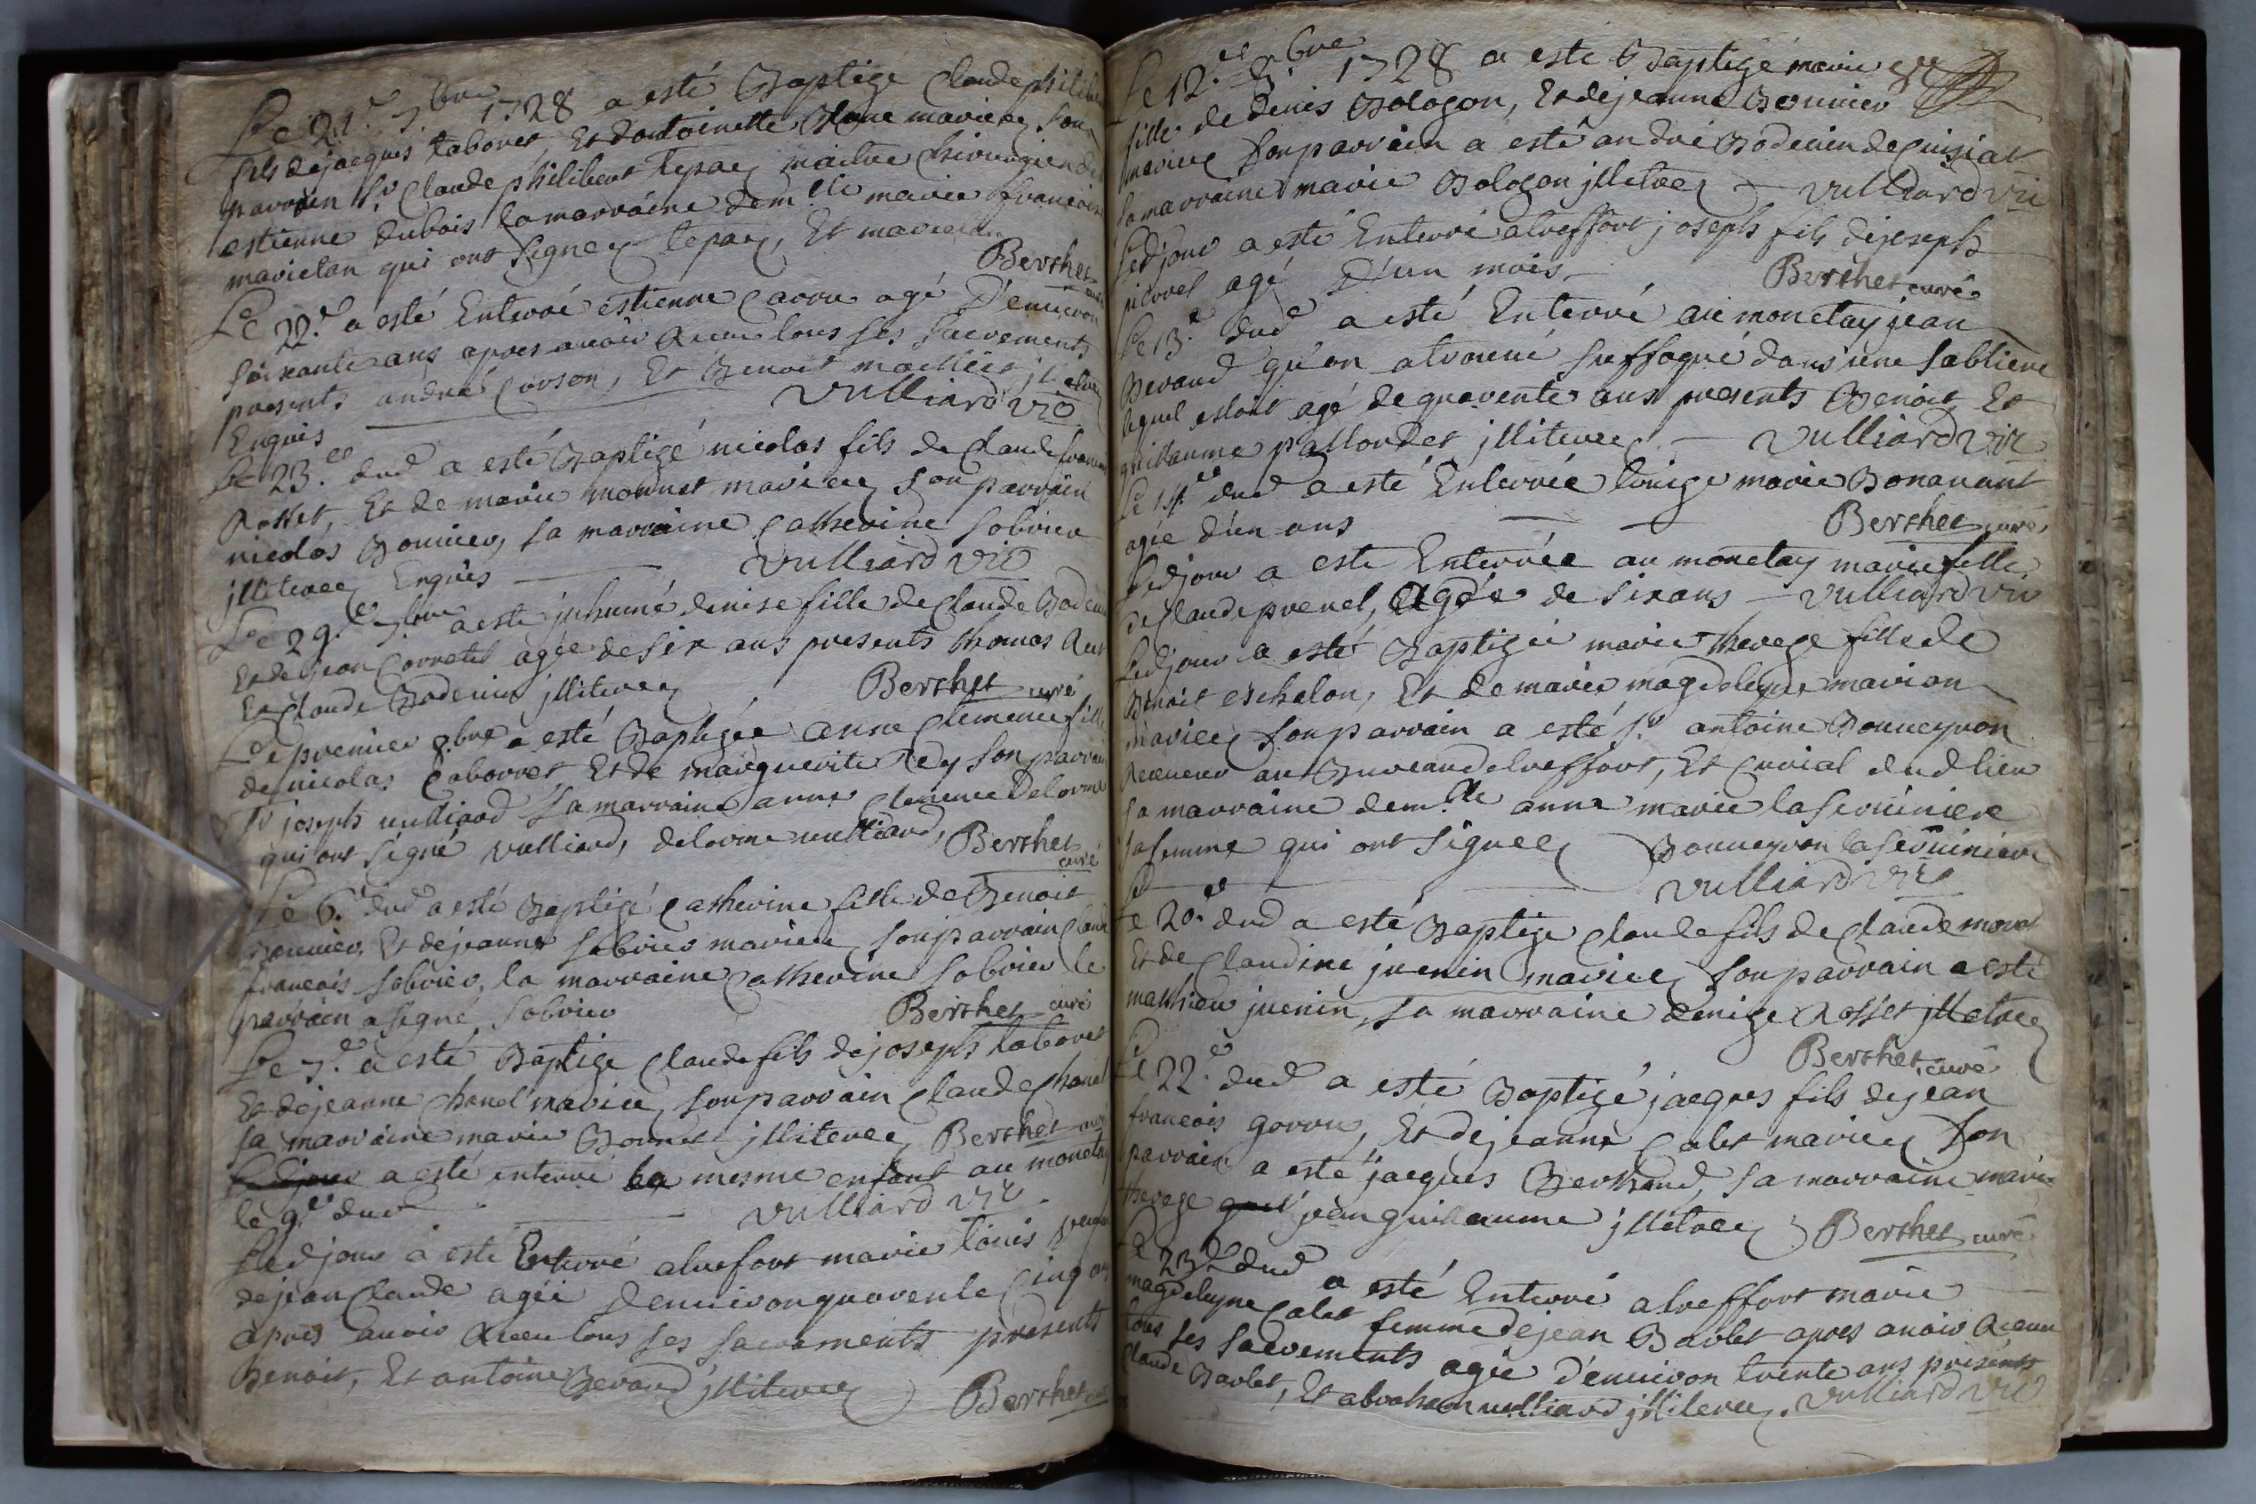 Le 21.e 7bre 1728 a esté Baptizé Claude philibert
fils de jacques taboret, Et dantoinette Blanc mariez, Son
parrain Sr. Claude philibert tepaz maitre chirurgien de St
estienne dubois la marraine dem.lle marie francoise
marietan qui ont Signez tepaz, Et marietan
Berthet curé
Le 22.e a esté Enterré estienne Carru agé D'enuiron
Soixante ans apres auoir Receu tous ses Sacrements
presents andré Corson, Et Benoit illitrez
Enquis Vulliard vic
Le 23.e dud a esté Baptizé nicolas fils de Claude francois
Rosset, Et de marie monnet mariez Son parrain
nicolas Bonnier, sa marraine Catherine Sobrier
illiterez Enquis Vulliard vic
Le 29.e 7.bre a esté inhumé denise fille de Claude Bodenier
Et de jean Cornetet agée de six ans presents thomas
Et Claude Bodenier illiterez Berthet curé
Le premier 8bre a esté Baptizée anne Clemence fille
de nicolas taborret Et de marguerite Rey Son parrain
Sr joseph vulliard Sa marraine anne Clemence Delorme
qui ont Signé vulliard, delorme vulliard, Berthet
curé
Le 6.e dud a esté Baptizé Catherine fille de Benoit
Bonnier, Et de jeanne Sobrier mariez son parrain Claude
francois Sobrier, la marraine Catherine Sobrier le
parrain a Signé Sobrier Berthet curé
Le 7.e a esté Baptize Claude fils de joseph taboret
Et de jeanne Chanel mariez, son parrain Claude Chanel
sa marraine marie Bonnet illiterez Berthet curé
Ledjour a esté enterré le mesme enfant au monetay
le 9.e dud Vulliard vic
Ledjour a esté Enterré a treffort marie louis
de jean Claude agée denuiron quarente Cinq ans
apres auoir Receu tous ses sacrements presents
Benoit, Et antoine Beraud illiterez Berthet curé
Le 12.e 8.bre 1728 a esté Baptizé marie
fille de denis Bologon, Et de jeanne Bonnier
mariez Son parrain a esté andré Bodenier de Cuisiat
sa marraine marie Bologon illitrez Vulliard vic
Ledjour a esté Enterré a treffort joseph fils de joseph
pierret agé D'un mois Berthet curé
Le 13.e dud a esté Enterré au monetay jean
Beraud qu'on a trouué suffoqué dans une Sabliere
lequel estoit agé de quarente ans presents Benoit Et
guillaume pallordet illiterez Vulliard vic
Le 14.e dud a esté Enterrée louise marie Bonauant
agée d'un ans Berthet curé
Ledjour a esté Enterrée au monetay marie fille
de Claude prenel, Agée de six ans Vulliard vic
Ledjour a esté Baptizée marie therese fille de
Benoit eschalon, Et de marie magdeleyne marion
mariez Son parrain a esté Sr. antoine Bonneyron
Receueur au Bureau de treffort, Et Curial dud lieu
sa marraine dem.lle anne marie laseruiniere
sa femme qui ont Signez Bonneyron laseruiniere
Vulliard vic
Le 20.e dud a esté Baptize Claude fils de Claude morat
Et de Claudine juenin mariez Son parrain a esté
mathieu juenin, sa marraine denize Rosset illitrez
Berthet, curé
Le 22.e dud a esté Baptizé jacques fils de jean
francois gorru, Et de jeanne Calet mariez Son
parrain a esté jacques Berthaud, sa marraine marie
therese jean guillaume illitrez Berthet curé
Le 23.e dud a esté Enterré a treffort marie
magdeleyne Calet femme de jean Barlet apres auoir Receu
tous ses Sacrements agée d'enuiron trente ans presents
Claude Barlet, Et abraham vulliard illiterez. Vulliard vic